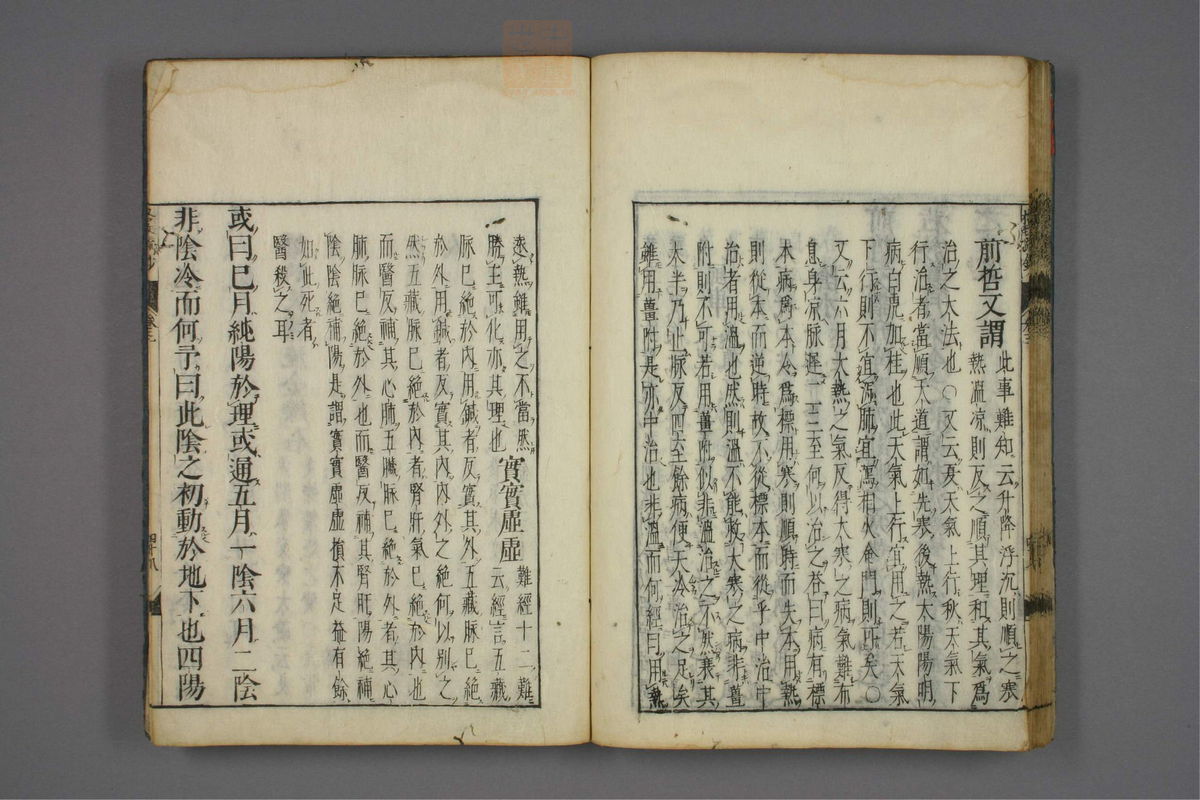 前哲又謂
此事難知云升降浮沉則順之寒
熱溫凉則反之順其理和其氣爲
治之大法也○又云夏天氣上行秋天氣下
行治者當順天道謂如先寒後熱太陽陽明
病白虎加桂也此天氣上行宜用之若天氣
下行則不宜瀉肺宜瀉相火命門則可矣○
又云六月大熱之氣反得大寒之病氣難布
息身凉脉遲二三至何以治之荅曰病有標
本病爲本令爲標用寒則順時而失本用熱
則從本而逆時故不從標本而從乎中治中
治者用溫也然則溫不能救大寒之病非薑
附則不可若用薑附似非溫治之不然衰其
大半乃止脉反四至餘病便天令治之足矣
雖用薑附是亦中治也非溫而何經曰用熱
遠熱雖用之不當然
勝主可化亦其理也
實實虛虛
難經十二難
云經言五藏
脉巳絶於內用鍼者反實其外五藏脉巳絶
於外用鍼者反實其內內外之絶何以別之
然五藏脉巳絶於內者腎肝氣巳絶於內也
而醫反補其心肺五臟脉巳絶於外者其心
肺脉巳絶於外也而醫反補其腎肝陽絶補
陰陰絶補陽是謂實實虛虛損不足益有餘
如此死者
醫殺之耳
或曰巳月純陽於理或通五月一陰六月二陰
非陰冷而何予曰此陰之初動於地下也四陽
四十八